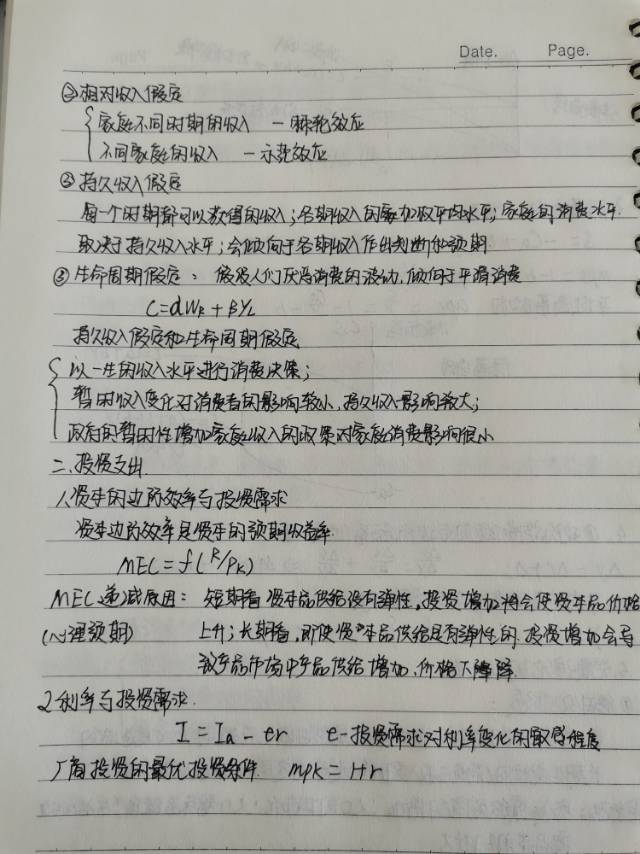 Date. Page.
②相对收入假定
家庭不同时期的收入 — 棘轮效应
不同家庭的收入 — 示范效应
② 持久收入假定
每一个时期都可以获得的收入;各期收入的加权平均水平;家庭的消费水平
取决于持久收入水平;会倾向于各期收入作出判断和预期
③ 生命周期假定: 假设人们厌恶消费的波动,倾向于平滑消费
C=αWR+βYL
持久收入假定和生命周期假定
以一生的收入水平进行消费决策;
暂时收入变化对消费者的影响较小,持久收入影响较大;
政府的暂时性增加家庭收入的政策对家庭消费影响很小
二、投资支出
1、资本的边际效率与投资需求
资本边际效率是资本的预期收益率
MEC=f(R/PK)
MEC递减原因: 短期看 资本品供给没有弹性,投资增加将会使资本品价格
(心理预期) 上升;长期看,即使资本品供给是有弹性的 投资增加会导
致产品市场中产品供给增加,价格下降
2、利率与投资需求
I=Ia-er e-投资需求对利率变化的敏感程度
厂商投资的最优投资条件 mpk=1+r